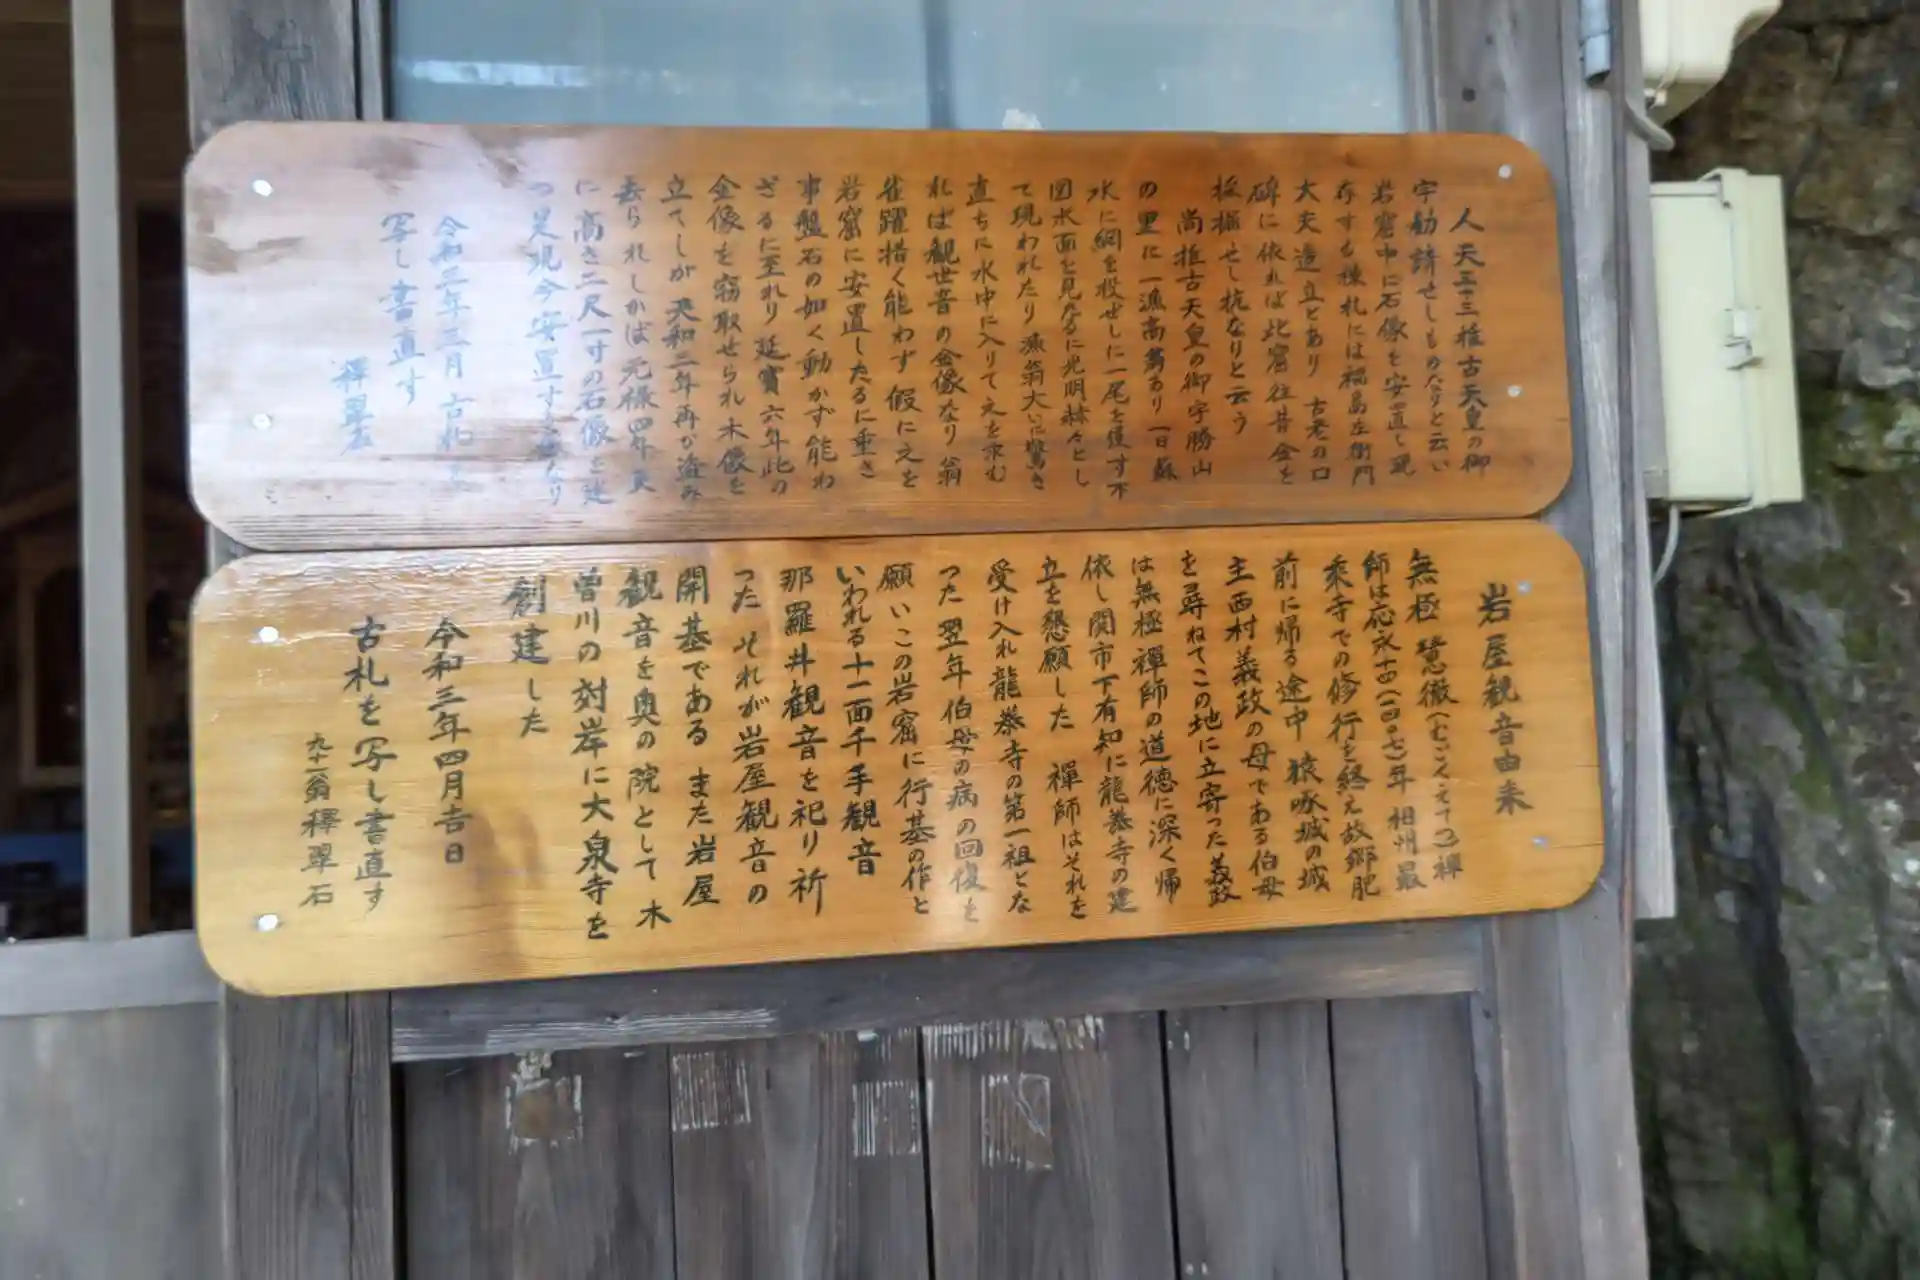 人天三十三推古天皇の御
宇勧請せしものなりと云い
岩窟中に石像を安置し現
存する棟札には福島左衛門
大夫造立とあり 古老の口
碑に依れば此窟往昔金を
採掘せし坑なりと云う
尚推古天皇の御宇勝山
の里に一漁高翁あり一日蘇
水に網を投ぜしに一尾を獲ず不
図水面を見たるに光明赫々とし
て現われたり 漁翁大いに驚き
直ちに水中に入りて之を求む
れば観世音の金像なり 翁
雀躍措く能わず 仮に之を
岩窟に安置したるに重き
事盤石の如く動かず能わ
ざるに至れり 延寶六年此の
金像を窃取せられ木像を
立てしが天和二年再び盗み
去られしかば元禄四年更
に高さ二尺一寸の石像を建
つ是現今安置する者なり
令和三年三月 古札を
写し書直す
釋翠石
岩屋観音由来
無極 慧徹(むごくえてつ)禅
師は応永十四(一四〇七)年 相州最
乗寺での修行を終え故郷肥
前に帰る途中 猿啄城の城
主西村義政の母である伯母
を尋ねてこの地に立寄った 義政
は無極禅師の道徳に深く帰
依し関市下有知に龍泰寺の建
立を懇願した 禅師はそれを
受け入れ龍泰寺の第一祖とな
った 翌年伯母の病の回復を
願いこの岩窟に行基の作と
いわれる十一面千手観音
那羅井観音を祀り祈
った それが岩屋観音の
開基である また岩屋
観音を奥の院として木
曽川の対岸に大泉寺を
創建した
令和三年四月吉日
古札を写し書直す
九十一翁 釋翠石